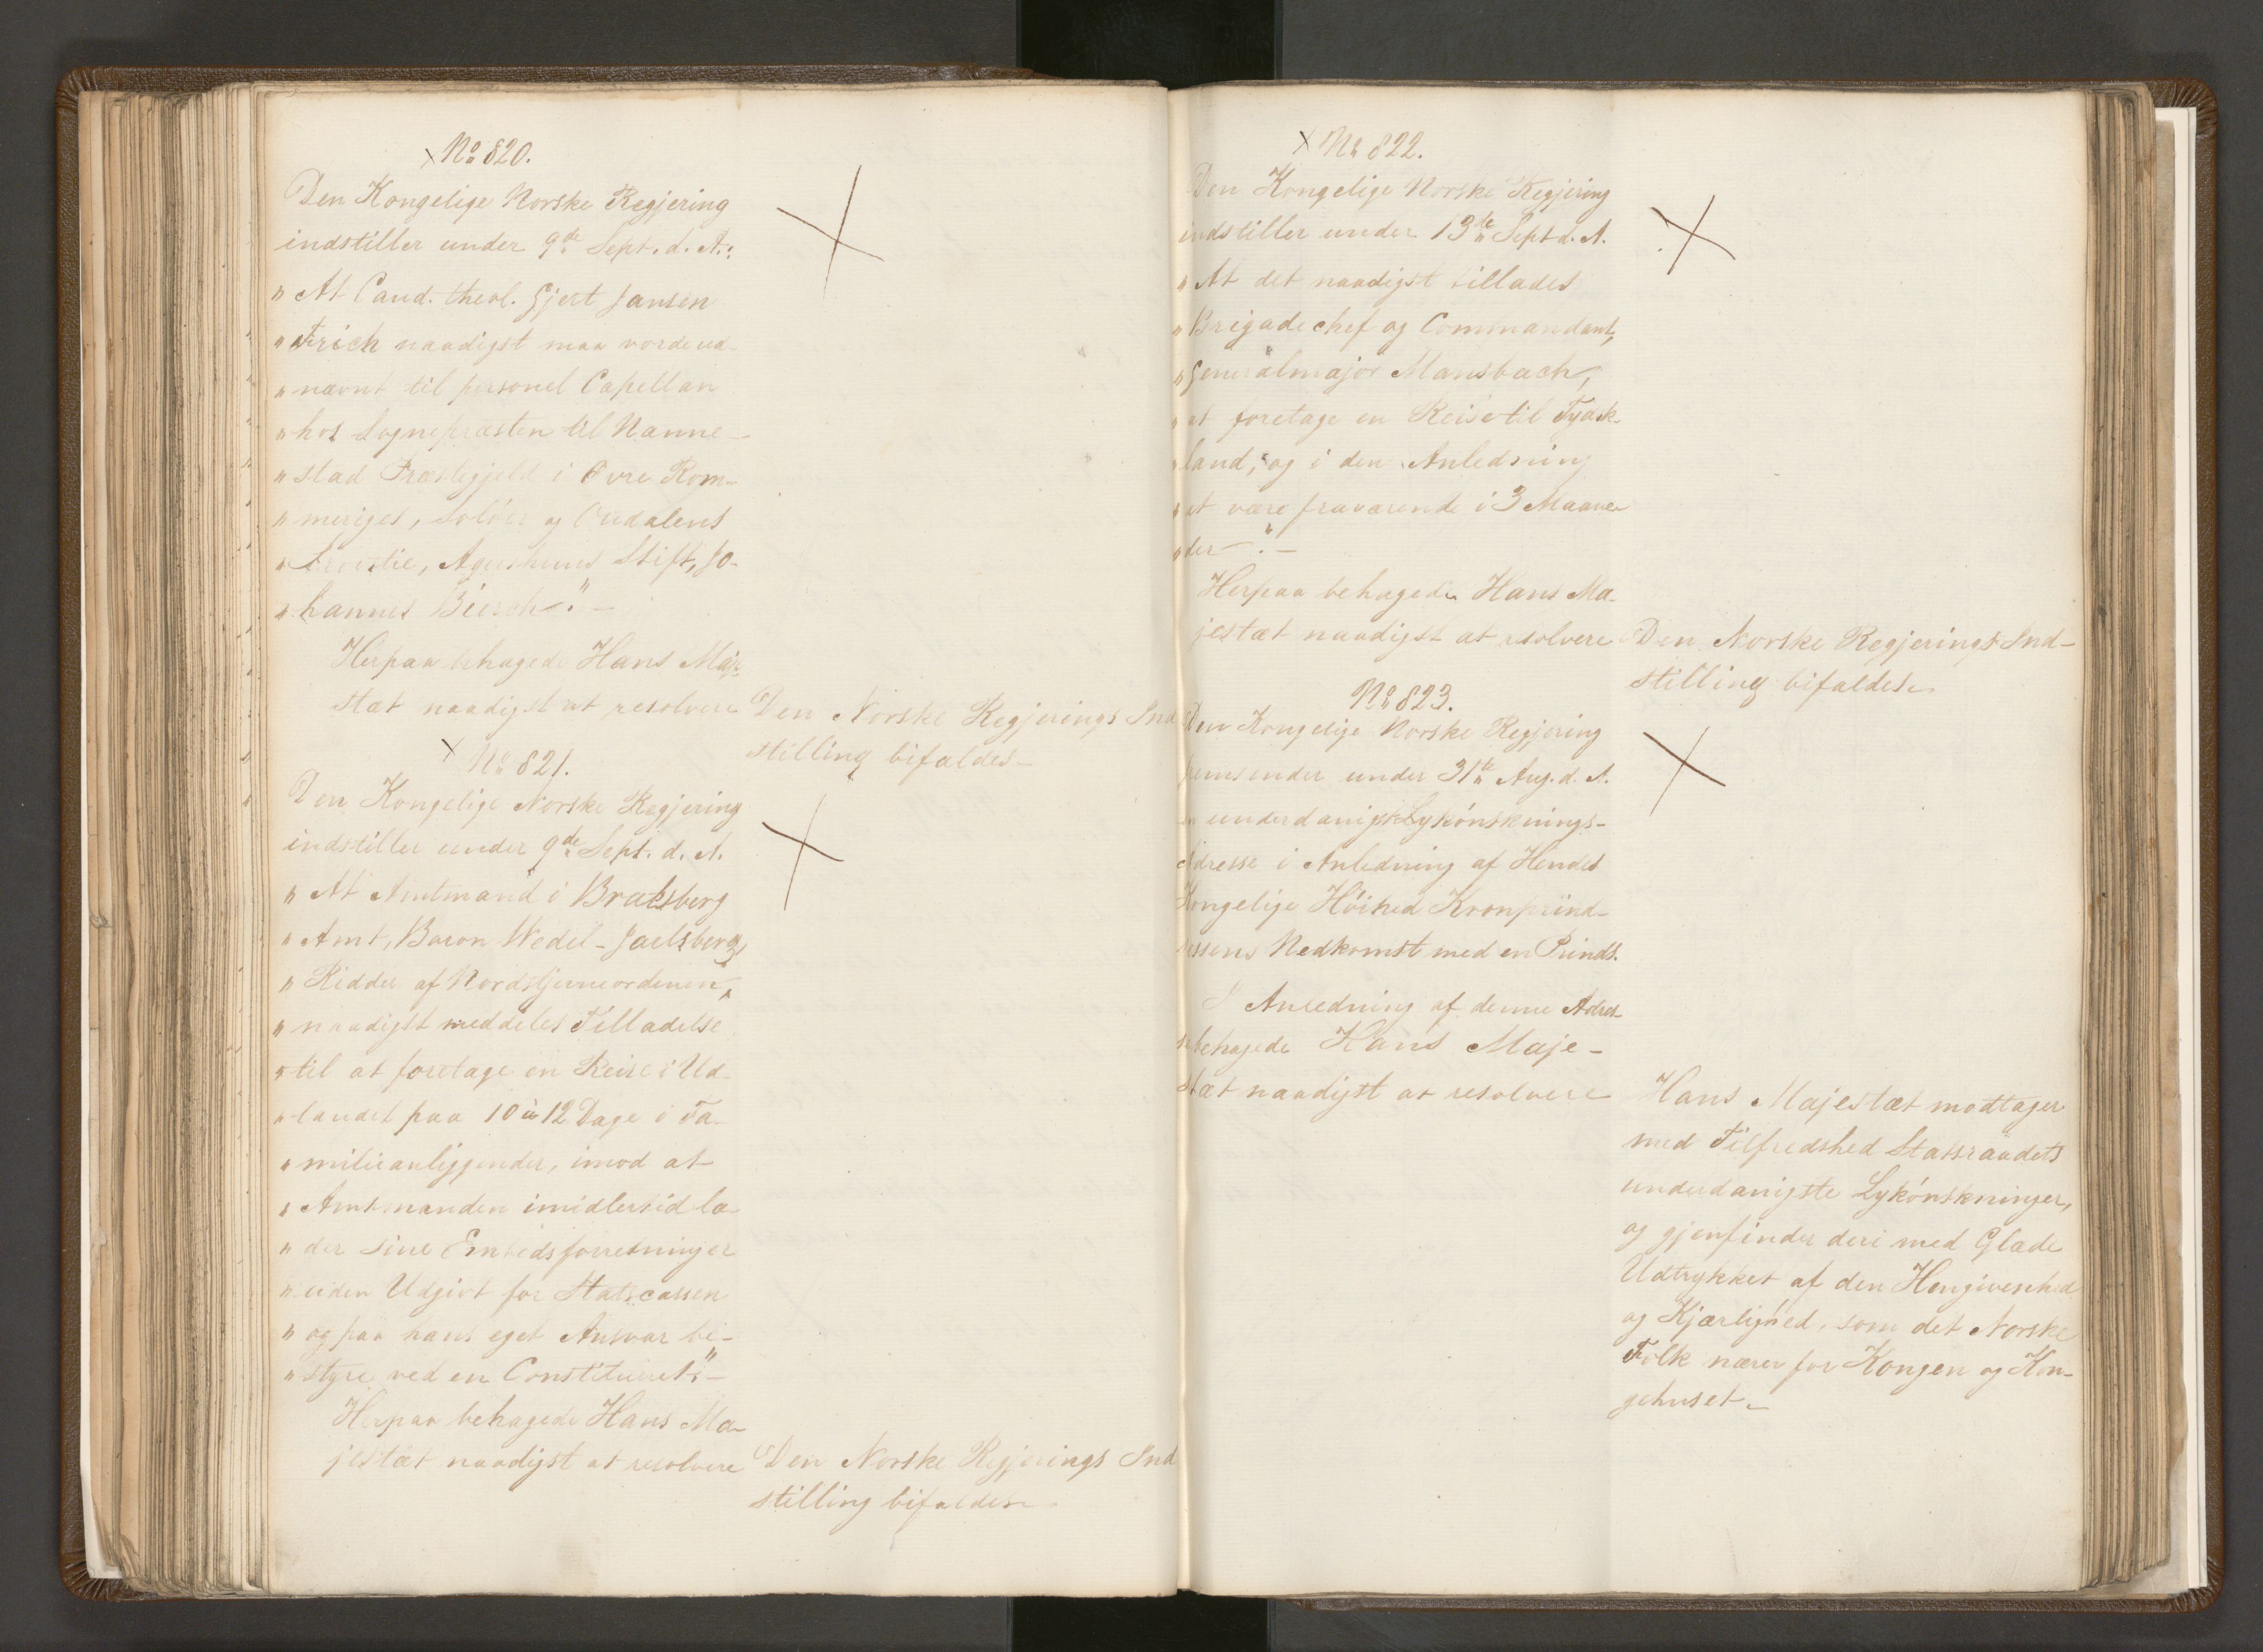 No 820.
Den Kongelige Norske Regjering
indstiller under 9de Sept. d. A.:
" At Cand. theol. Gjert Jansen
" Frich naadigst maa vorde ud-
" nævnt til personel Capellan
" hos Sognepræsten til Nanne-
" stad Præstegjeld i Øvre Rom-
" meriges, Soløer og Oudalens
" Provstie, Agershuus Stift, Jo-
" hannes Biersch". –
Herpaa behagede Hans Maje-
stæt naadigst at resolvere
Den Norske Regjerings Ind
stilling bifaldes –
No 821.
Den Kongelige Norske Regjering
indstiller under 9de Sept. d. A.
" At Amtmand i Bratsberg
" Amt, Baron Wedel-Jarlsberg,
" Ridder af Nordstjerneordenen,
" naadigst meddeles Tilladelse
" til at foretage en Reise i Ud-
" landet paa 10 à 12 Dage i Fa-
" milieanliggender, imod at
" Amtmanden imidlertid la-
" der sine Embedsforretninger
" uden Udgivt for Statscassen
" og paa hans eget Ansvar be-
" styre ved en Constitueret". –
Herpaa behagede Hans Ma-
jestæt naadigst at resolvere
Den Norske Regjerings Ind
stilling bifaldes
No 822.
Den Kongelige Norske Regjering
indstiller under 13de Sept d. A.
" At det naadigst tillades
" Brigadechef og Commandant,
" Generalmajor Mansbach,
" at foretage en Reise til Tydsk-
" land, og i den Anledning
" at være fraværende i 3 Maane-
" der". –
Herpaa behagede Hans Ma-
jestæt naadigst at resolvere
Den Norske Regjerings Ind-
stilling bifaldes
No 823.
Den Kongelige Norske Regjering
fremsender under 31te Aug. d. A.
en underdanigst Lykönsknings-
Adresse i Anledning af Hendes
Kongelige Höihed Kronprind-
sessens Nedkomst med en Prinds.
I Anledning af denne Adres-
se behagede Hans Maje-
stæt naadigst at resolvere
Hans Majestæt modtager
med Tilfredshed Statsraadets
underdanigste Lykönskninger,
og gjenfinder deri med Glæde
Udtrykket af den Hengivenhed
og Kjærlighed, som det Norske
Folk nærer for Kongen og Kon-
gehuset –